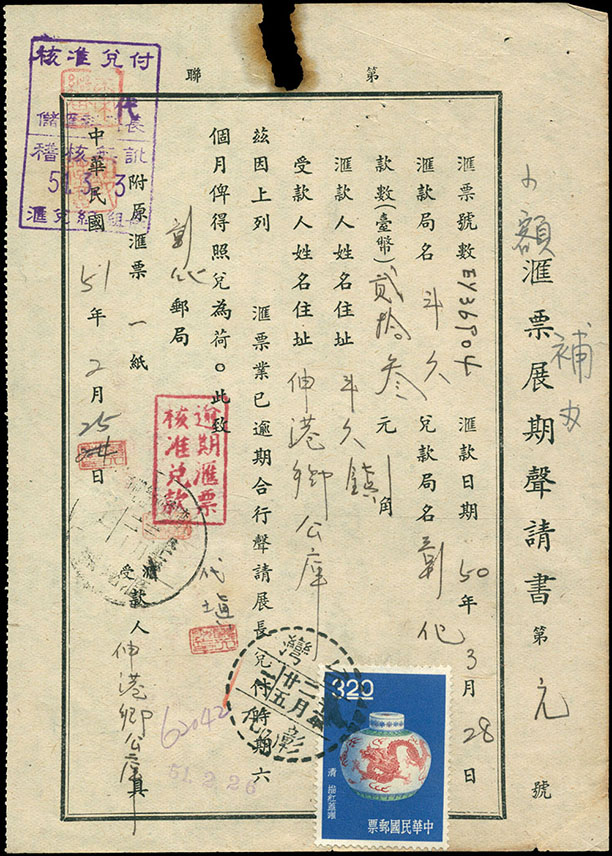 第 聯
小額匯票展期聲請書 第 元 號
補
匯票號數 EY36904 匯款日期 50年3月28日
匯款局名 斗六 兌款局名 彰化
款數(臺幣)貳拾叁元 角
匯款人姓名住址 斗六鎮
受款人姓名住址 伸港鄉公庫
茲因上列 匯票業已逾期合行聲請展長兌付時期六
個月俾得照兌為荷。此致
彰化郵局
附原匯票一紙
匯受款人 伸港鄉公庫 具
代塡
中華民國51年2月25日
核准兌付
代
長
稽核
51.3.3
匯兌組
逾期匯票
核准兌款
臺灣
彰化
62042
51.2.26
3.20
清
中華民國郵票